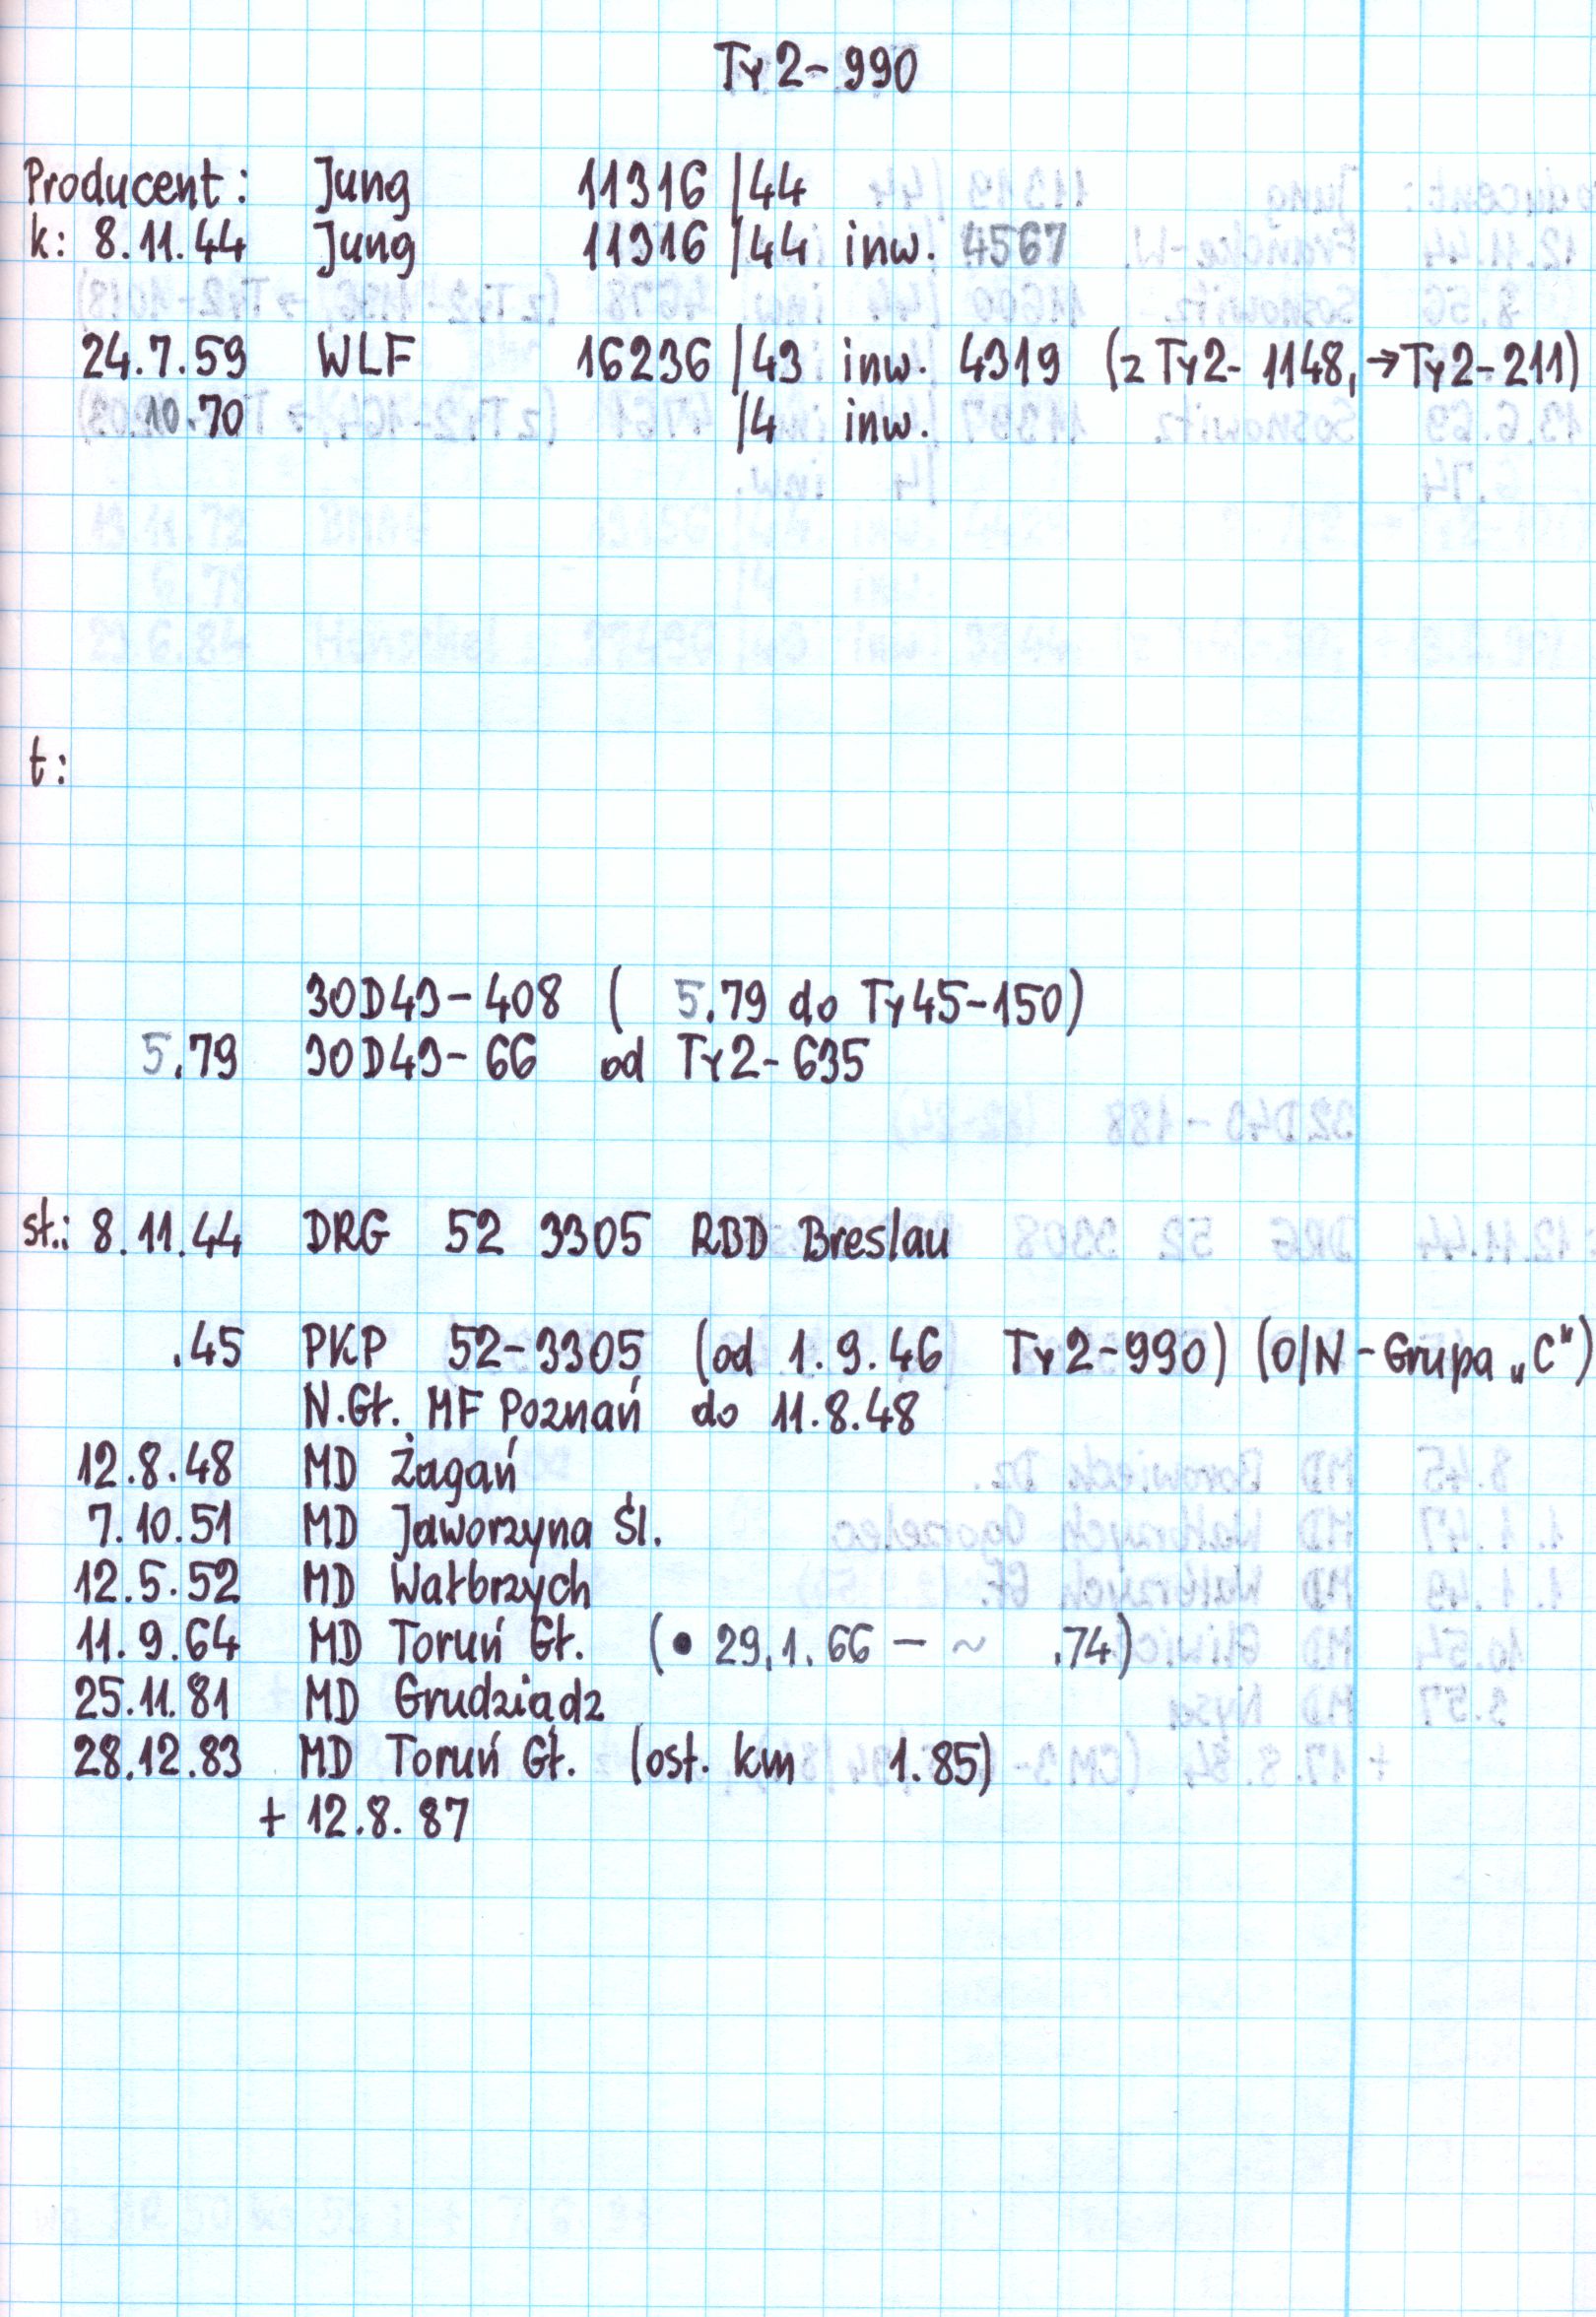 Ty2-990
Producent: Jung 11316 /44
k: 8.11.44 Jung 11316 /44 inw. 4567
24.7.59 WLF 16236 /43 inw. 4319 (z Ty2-1148, →Ty2-211)
10.70 /4 inw.
t:
30D43-408 ( 5.79 do Ty45-150)
5.79 30D43-66 od Ty2-635
st.: 8.11.44 DRG 52 3305 RBD Breslau
.45 PKP 52-3305 (od 1.9.46 Ty2-990) (O/N-Grupa „C")
N.Gł. MF Poznań do 11.8.48
12.8.48 MD Żagań
7.10.51 MD Jaworzyna Śl.
12.5.52 MD Wałbrzych
11.9.64 MD Toruń Gł. (• 29.1.66 — ~ .74)
25.11.81 MD Grudziądz
28.12.83 MD Toruń Gł. (ost. km 1.85)
+ 12.8.87